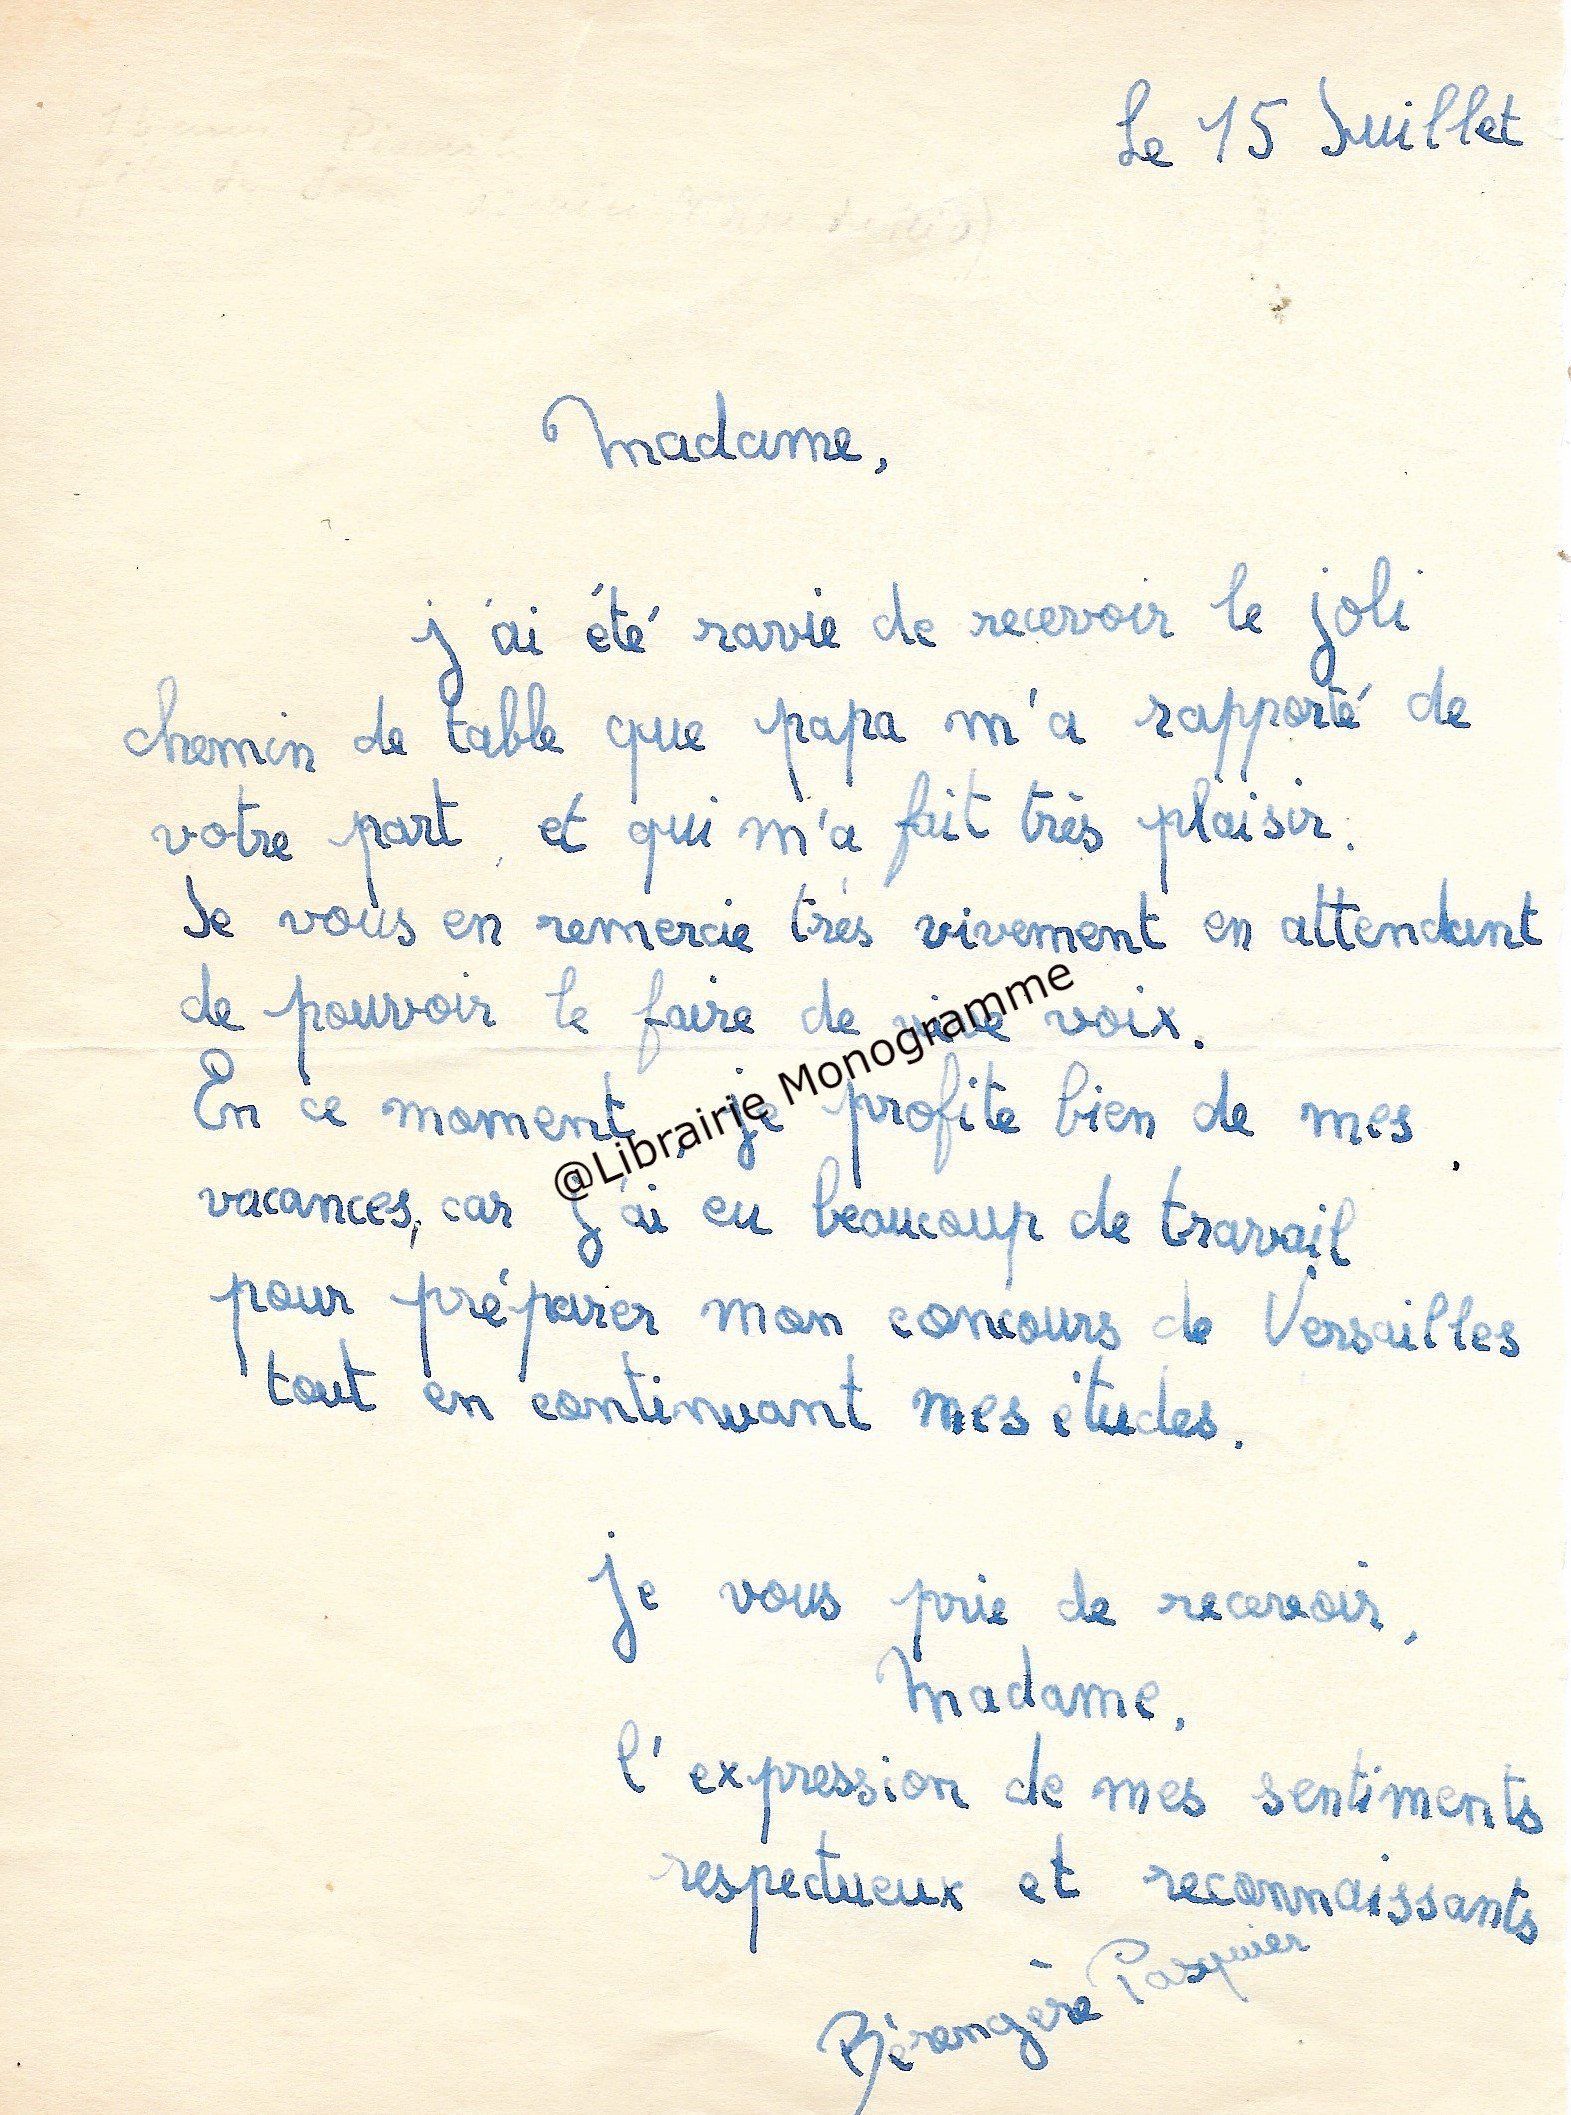 Le 15 Juillet
Madame,
j'ai été ravie de recevoir le joli
chemin de table que papa m'a rapporté de
votre part, et qui m'a fait très plaisir.
Je vous en remercie très vivement en attendant
de pouvoir le faire de vive voix.
En ce moment, je profite bien de mes
vacances, car j'ai eu beaucoup de travail
pour préparer mon concours de Versailles
tout en continuant mes études.
@Librairie Monogramme
Je vous prie de recevoir,
Madame,
l'expression de mes sentiments
respectueux et reconnaissants
Bérengère Pasquier